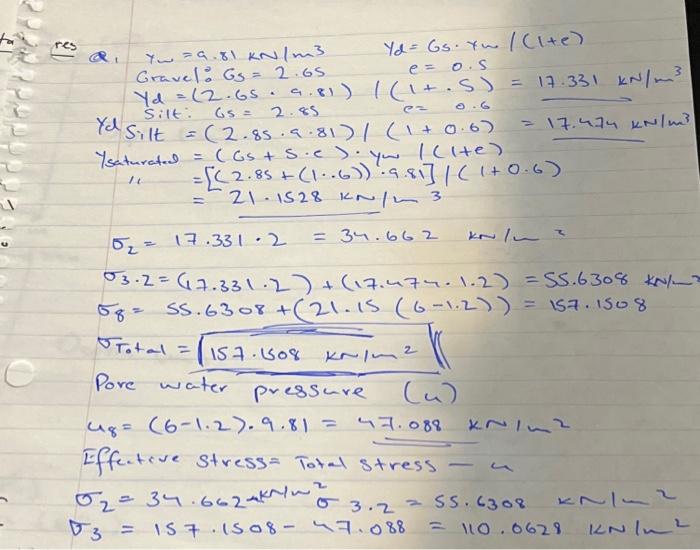 res Q1 γw = 9.81 KN/m3 γd = Gs. γw / (1+e)
Gravel: Gs = 2.65 e = 0.5
γd = (2.65 . 9.81) / (1 + .5) = 17.331 KN/m3
Silt: Gs = 2.85 e = 0.6
γd Silt = (2.85 . 9.81) / (1 + 0.6) = 17.474 KN/m3
γsaturated = (Gs + S.e) . γw / (1+e)
" = [(2.85 + (1..6)) . 9.81] / (1+0.6)
= 21.1528 KN/m3
σ2 = 17.331 . 2 = 34.662 KN/m2
σ3.2 = (17.331.2) + (17.474.1.2) = 55.6308 KN/m2
σ8 = 55.6308 + (21.15 (6-1.2)) = 157.1508
σTotal = 157.1508 KN/m2
Pore water pressure (u)
u8 = (6-1.2).9.81 = 47.088 KN/m2
Effective stress = Total stress - u
σ2 = 34.662 KN/m2 σ3.2 = 55.6308 KN/m2
σ3 = 157.1508 - 47.088 = 110.0628 KN/m2